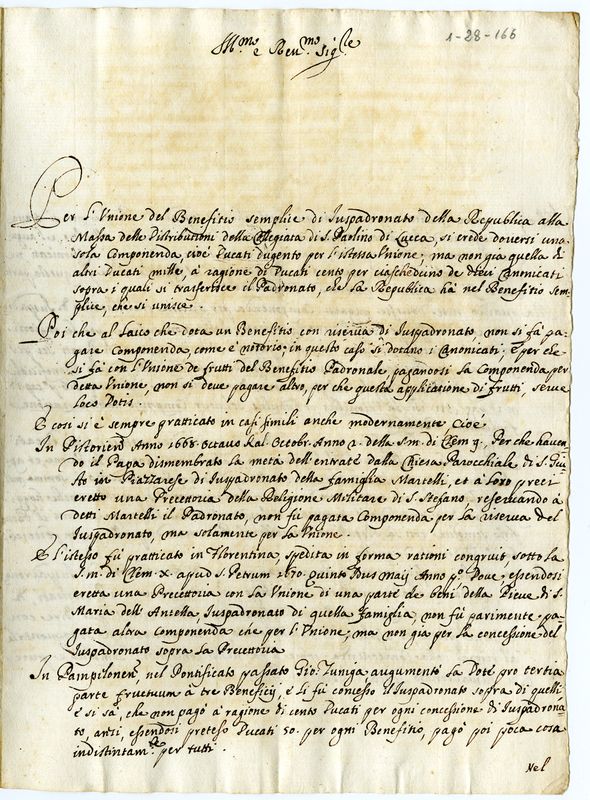 1-28-166
Ill.mo e Reu.mo Sig.re
Per l'Vnione del Benefitio semplice di Iuspadronato della Republica alla
Massa delle Distributioni della Collegiata di S. Paolino di Lucca, si crede douersi una
sola Componenda, cioè Ducati dugento per l'istessa Vnione, ma non già quella di
altri Ducati mille, à ragione di Ducati cento per ciascheduno de Dieci Canonicati
sopra i quali si trasferisce il Padronato, che la Republica hà nel Benefitio sem-
plice, che si unisce.
Poi che al Laico che dota un Benefitio con riserua di Iuspadronato, non si fà pa-
gare Componenda, come è notorio; in questo caso si dotano i Canonicati, e per che
si fà con l'Vnione de frutti del Benefitio Padronale, pagandosi la Componenda per
detta Vnione, non si deue pagare altro, per che questa applicatione di frutti, serue
loco Dotis.
E così si è sempre pratticato in casi simili anche modernamente cioè
In Pistorien Anno 1668. Octauo Kal. Octobr. Anno 2. della S.m. di Clem. 9. Per che hauen-
do il Papa dismembrato la metà dell'entrate dalla Chiesa Parocchiale di S. Giu-
sto in Piazzarese di Iuspadronato della famiglia Martelli, et à loro preci
eretto una Precettoria della Religione Militare di S. Stefano, reseruando à
detti Martelli il Padronato, non fù pagata Componenda per la riserua del
Iuspadronato, ma solamente per la Vnione.
E l'istesso fù pratticato in Florentina, spedita in forma rationi congruit, sotto la
S.m. di Clem. X. apud S. Petrum 1670. quinto Idus Maij Anno p.o Doue, essendosi
eretta una Precettoria con la Vnione di una parte de beni della Pieue di S.
Maria dell'Antella, Iuspadronato di quella famiglia, non fù parimente pa-
gata altra Componenda che per l'Vnione, ma non già per la concessione del
Iuspadronato sopra la Precettoria
In Pampilonen, nel Pontificato passato Gio: Zuniga augumentò la Dote pro tertia
parte fructuum à tre Beneficij, e li fù concesso il Iuspadronato sopra di quelli
e si sà, che non pagò à ragione di cento Ducati per ogni concessione di Iuspadrona-
to, anzi, essendosi preteso Ducati 50. per ogni Benefitio, pagò poi poca cosa
indistintam.te per tutti.
Nel